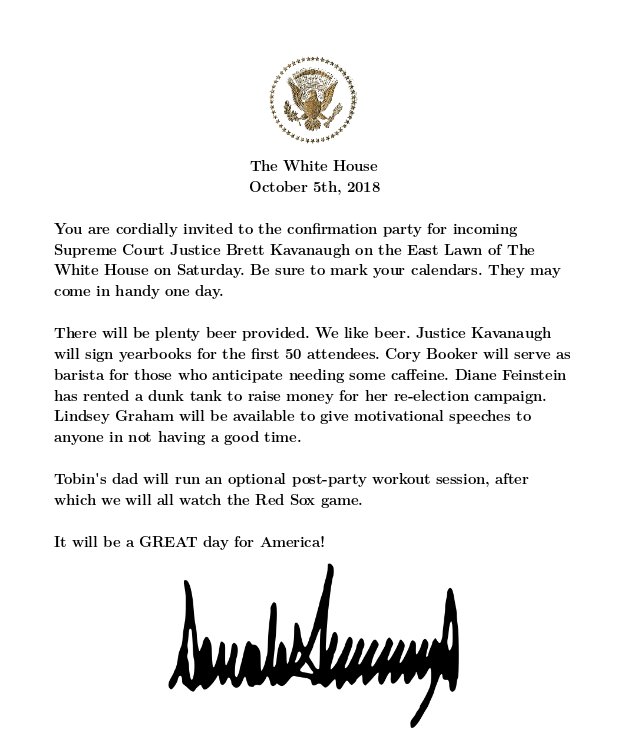 The White House
October 5th, 2018
You are cordially invited to the confirmation party for incoming
Supreme Court Justice Brett Kavanaugh on the East Lawn of The
White House on Saturday. Be sure to mark your calendars. They may
come in handy one day.
There will be plenty beer provided. We like beer. Justice Kavanaugh
will sign yearbooks for the first 50 attendees. Cory Booker will serve as
barista for those who anticipate needing some caffeine. Diane Feinstein
has rented a dunk tank to raise money for her re-election campaign.
Lindsey Graham will be available to give motivational speeches to
anyone in not having a good time.
Tobin's dad will run an optional post-party workout session, after
which we will all watch the Red Sox game.
It will be a GREAT day for America!